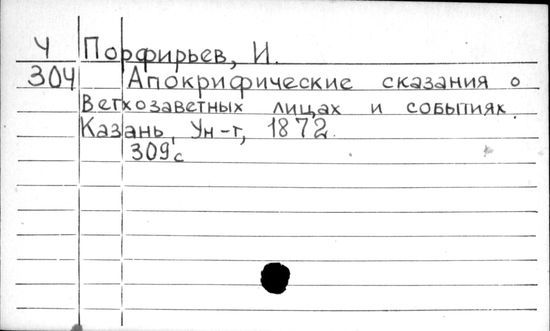 Ч Порфирьев, И.
304 Апокрифические сказания о
Ветхозаветных лицах и событиях.
Казань, Ун-т, 1872.
309с